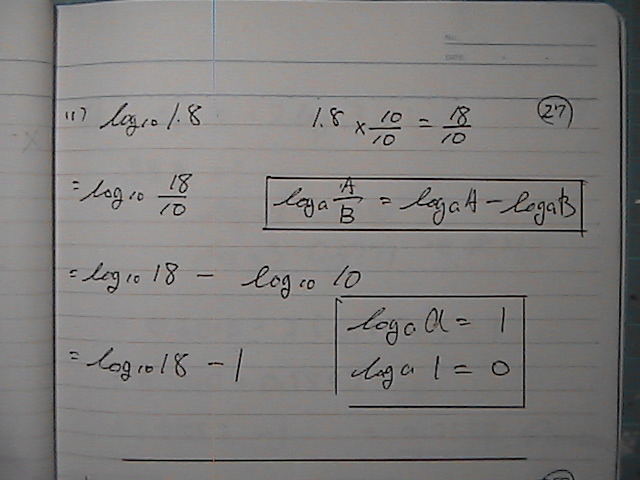 11) log₁₀ 1.8 1.8 × 10/10 = 18/10 (27)
= log₁₀ 18/10 logₐ A/B = logₐ A − logₐ B
= log₁₀ 18 − log₁₀ 10
logₐ a = 1
= log₁₀ 18 − 1 logₐ 1 = 0